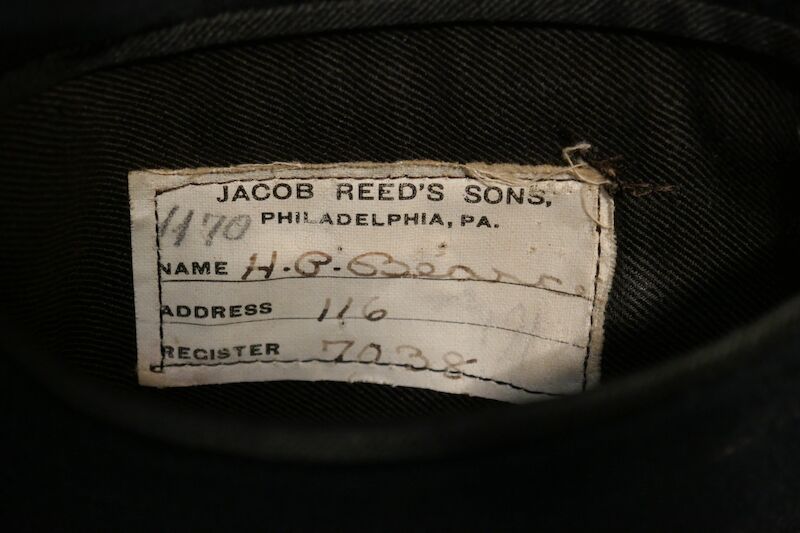 JACOB REED'S SONS,
PHILADELPHIA, PA.
1170
NAME H.P.
ADDRESS 116
REGISTER 7038